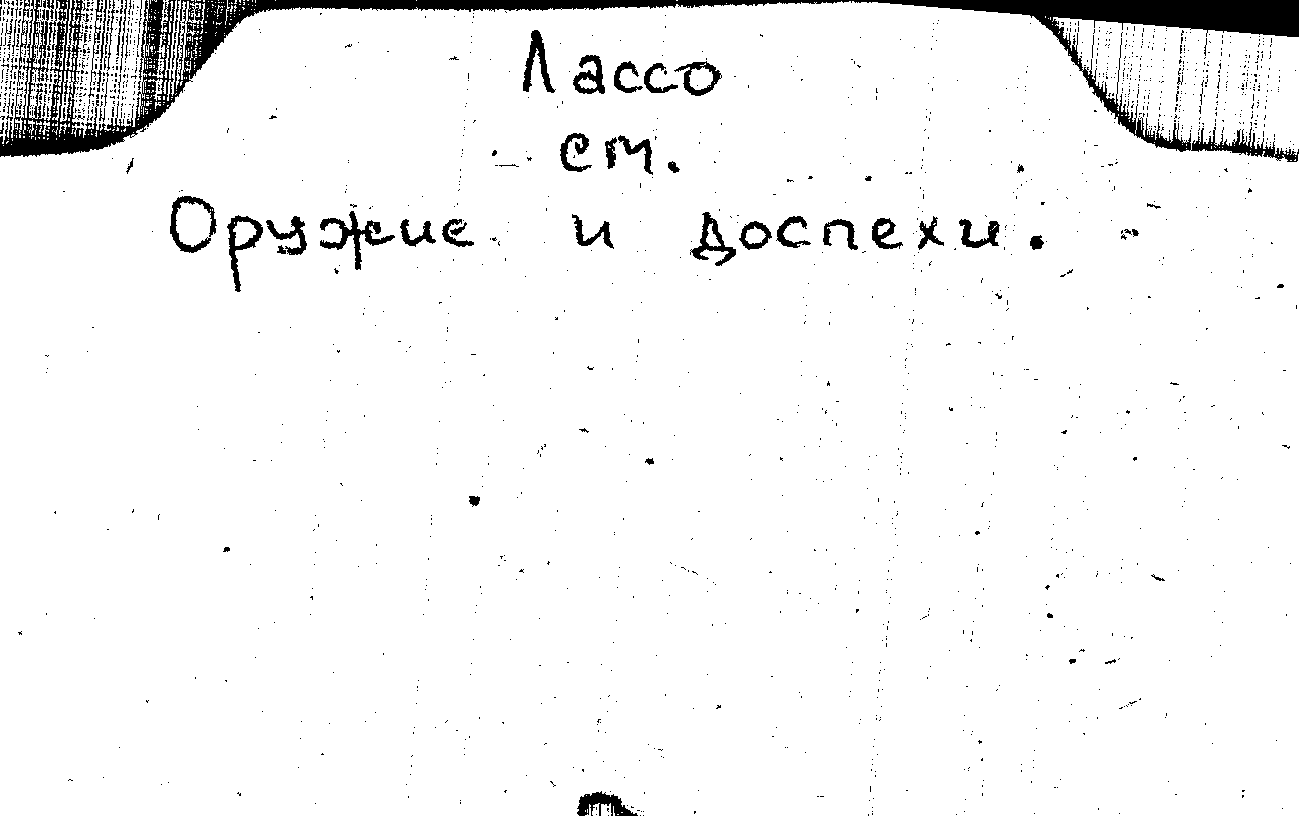 Лассо
см.
Оружие и доспехи.